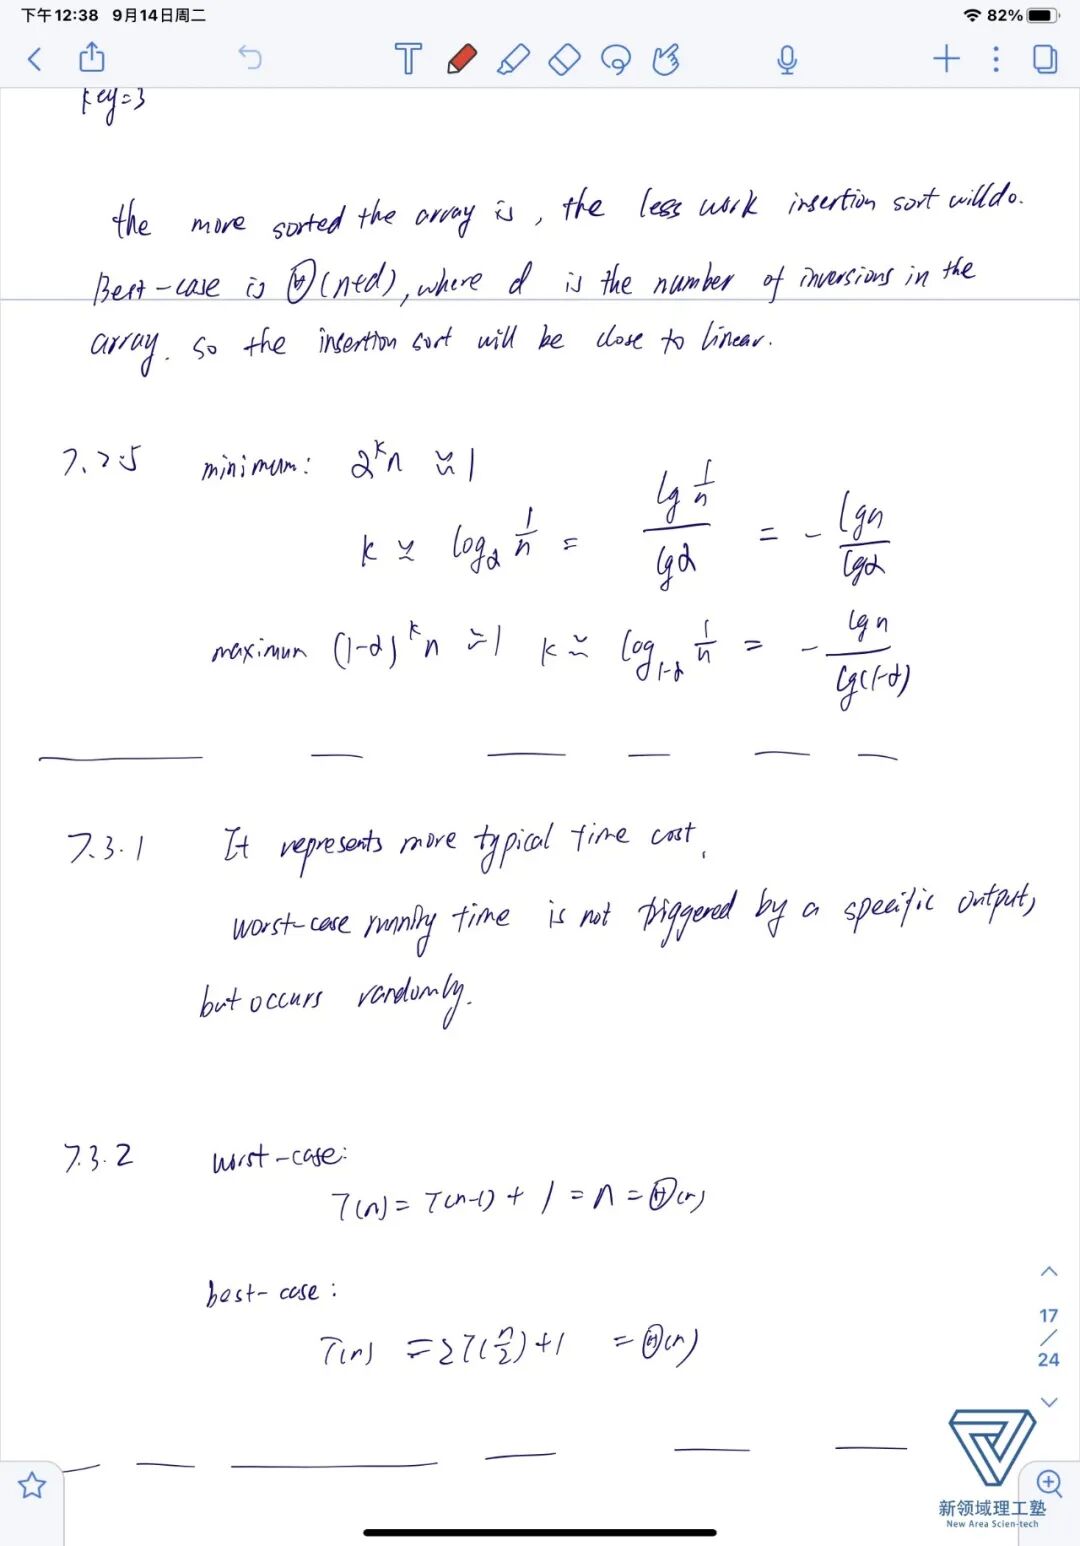 下午12:38 9月14日周二 82%
key=3
the more sorted the array is, the less work insertion sort will do.
Best-case is Θ(n+d), where d is the number of inversions in the
array. so the insertion sort will be close to linear.
7.2.5 minimum: α^k n ≈ 1
k ≈ log_α 1/n = lg 1/n / lg α = - lg n / lg α
maximum (1-α)^k n ≈ 1 k ≈ log_{1-α} 1/n = - lg n / lg(1-α)
7.3.1 It represents more typical time cost.
worst-case running time is not triggered by a specific output,
but occurs randomly.
7.3.2 worst-case:
T(n) = T(n-1) + 1 = n = Θ(n)
best-case:
T(n) = 2T(n/2) + 1 = Θ(n)
17
/
24
新领域理工塾
New Area Scien-tech